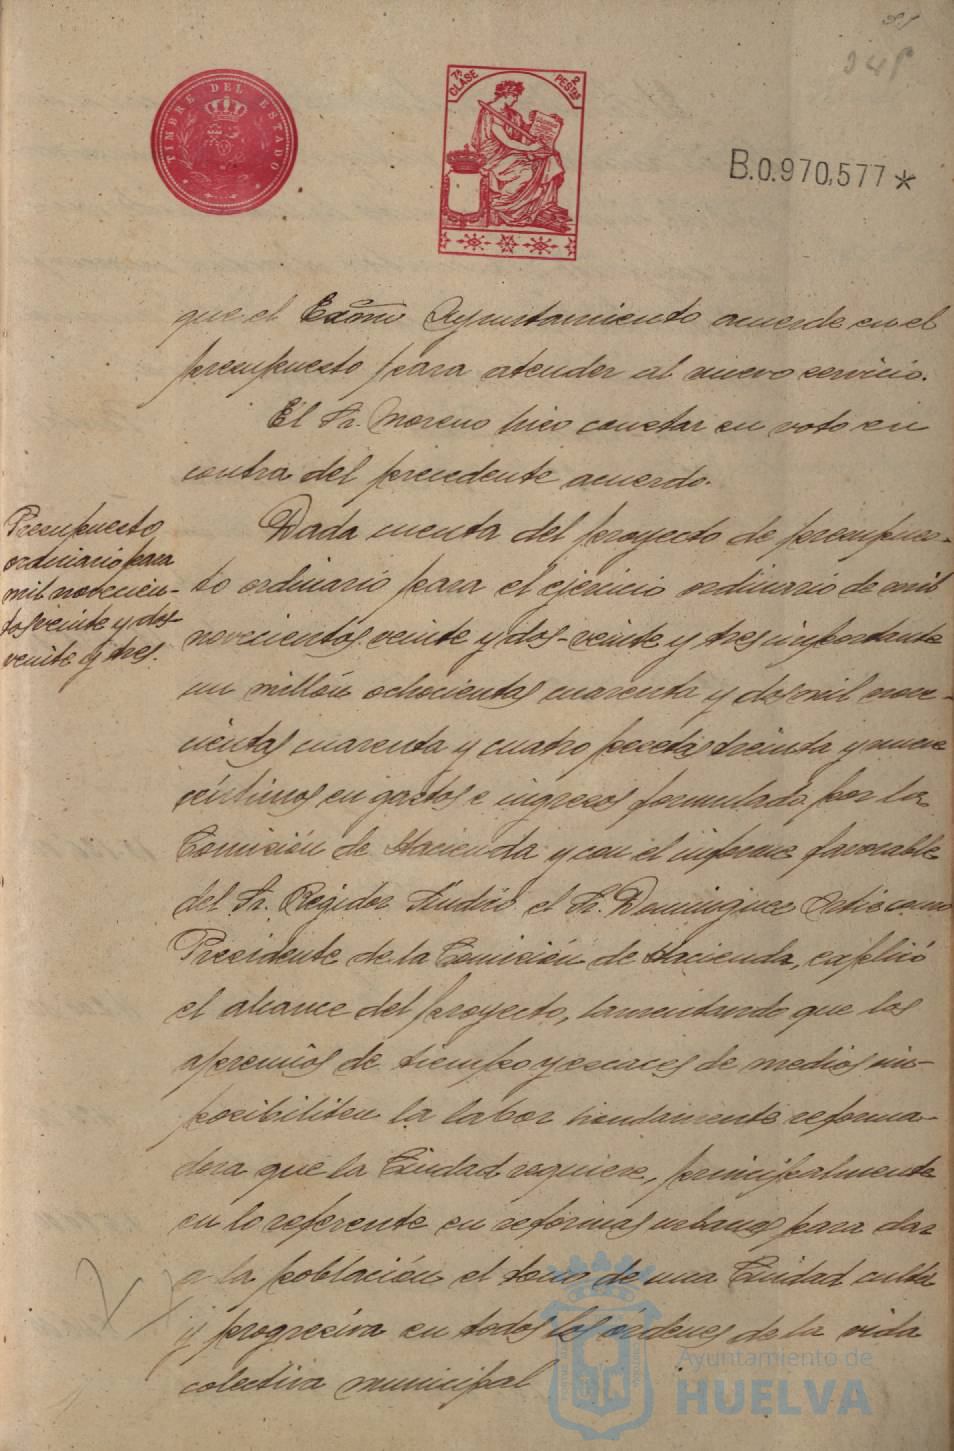 TIMBRE DEL ESTADO
7ª CLASE
2 PESTAS
B.0.970,577*
que el Excmo Ayuntamiento acuerde en el
presupuesto para atender al nuevo servicio.
El Sr. Moreno hizo constar su voto en
contra del precedente acuerdo.
Presupuesto
ordinario para
mil novecien-
tos veinte y dos
veinte y tres.
Dada cuenta del proyecto de presupues-
to ordinario para el ejercicio ordinario de mil
novecientos veinte y dos-veinte y tres importante
un millón ochocientas cuarenta y dos mil nove-
cientas cuarenta y cuatro pesetas treinta y nueve
céntimos en gastos e ingresos formulado por la
Comisión de Hacienda y con el informe favorable
del Sr. Regidor Síndico el Sr. Dominguez Ortiz como
Presidente de la Comisión de Hacienda, explicó
el alcance del proyecto, lamentando que los
apremios de tiempo y escaces de medios im-
posibiliten la labor hondamente reforma-
dora que la Ciudad requiere, principalmente
en lo referente en reformas urbanas para dar
a la población el tono de una Ciudad culta
y progresiva en todos los ordenes de la vida
colectiva municipal
Ayuntamiento de
HUELVA